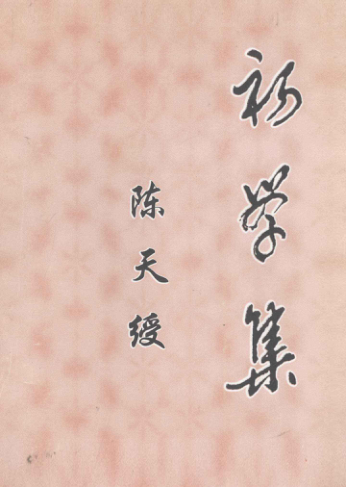 初学集
陈天绶